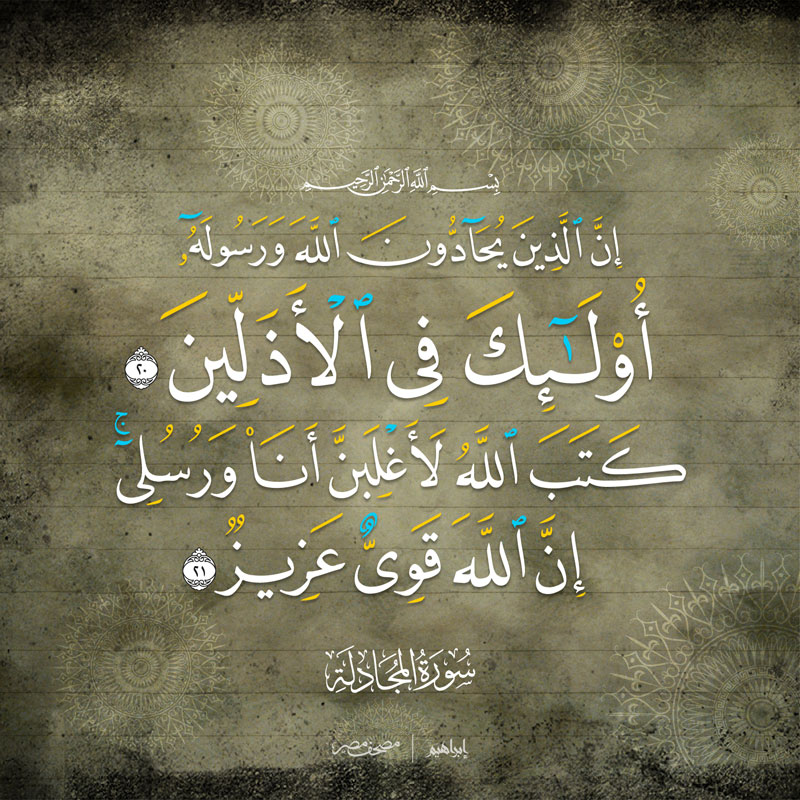 بِسْمِ ٱللَّهِ ٱلرَّحْمَٰنِ ٱلرَّحِيمِ
إِنَّ ٱلَّذِينَ يُحَآدُّونَ ٱللَّهَ وَرَسُولَهُۥٓ
أُو۟لَٰٓئِكَ فِى ٱلْأَذَلِّينَ ٢٠
كَتَبَ ٱللَّهُ لَأَغْلِبَنَّ أَنَا۠ وَرُسُلِىٓۚ
إِنَّ ٱللَّهَ قَوِىٌّ عَزِيزٌ ٢١
سُورَةُ المُجَادلَةِ
إبراهيم | مصحف مصر